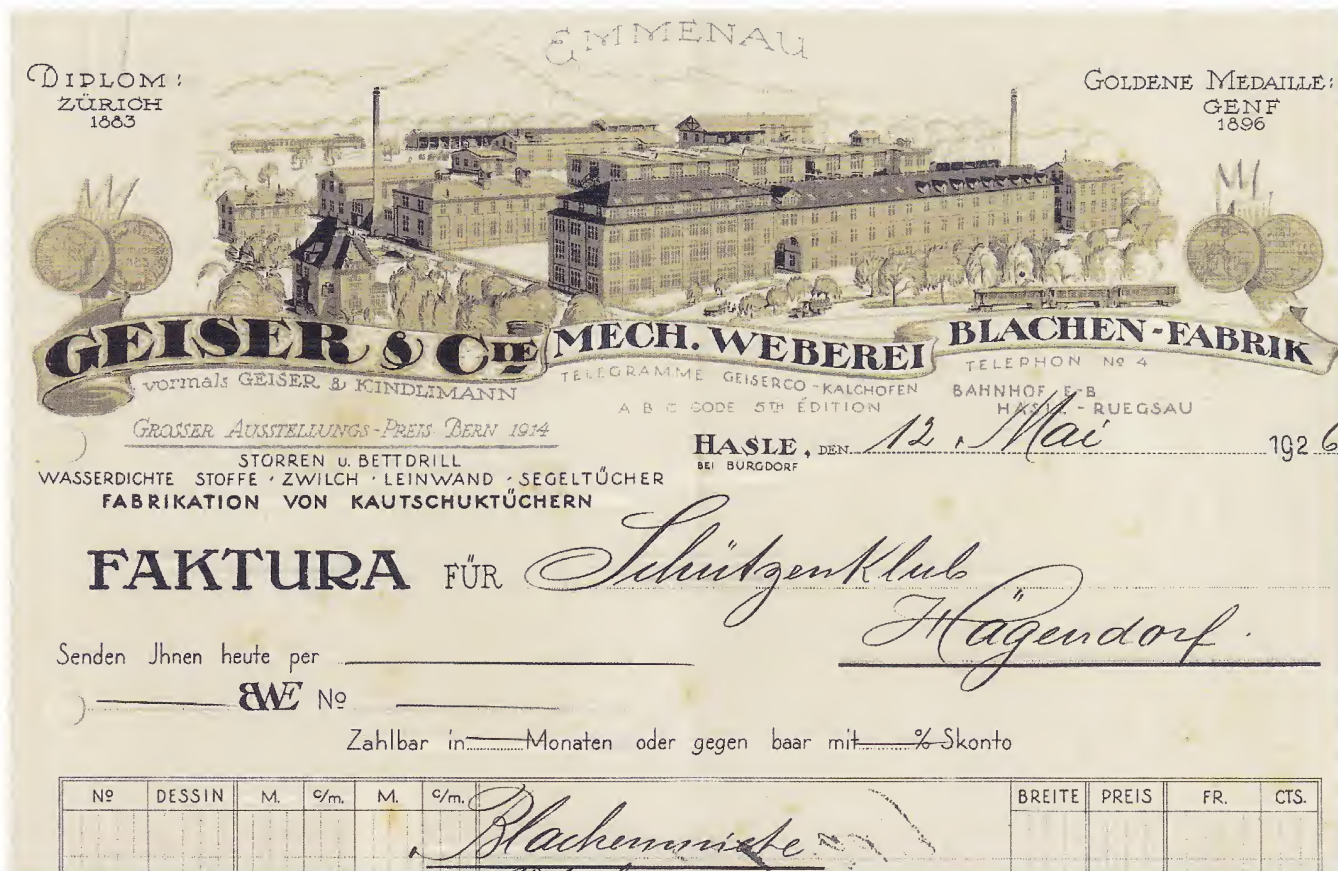 EMMENAU
DIPLOM:
ZÜRICH
1883
GOLDENE MEDAILLE:
GENF
1896
GEISER & CIE MECH. WEBEREI BLACHEN-FABRIK
vormals GEISER & KINDLIMANN
TELEGRAMME GEISERCO-KALCHOFEN
A B C CODE 5TH ÉDITION
TELEPHON No 4
BAHNHOF E-B
HASLE-RUEGSAU
GROSSER AUSSTELLUNGS-PREIS BERN 1914
STORREN U. BETTDRILL
WASSERDICHTE STOFFE · ZWILCH · LEINWAND · SEGELTÜCHER
FABRIKATION VON KAUTSCHUKTÜCHERN
HASLE, DEN 12. Mai 1926
BEI BURGDORF
FAKTURA FÜR Schützenklub
Hägendorf.
Senden Jhnen heute per
BWE No
Zahlbar in Monaten oder gegen baar mit % Skonto
No DESSIN M. c/m. M. c/m. BREITE PREIS FR. CTS.
Blachenmiete